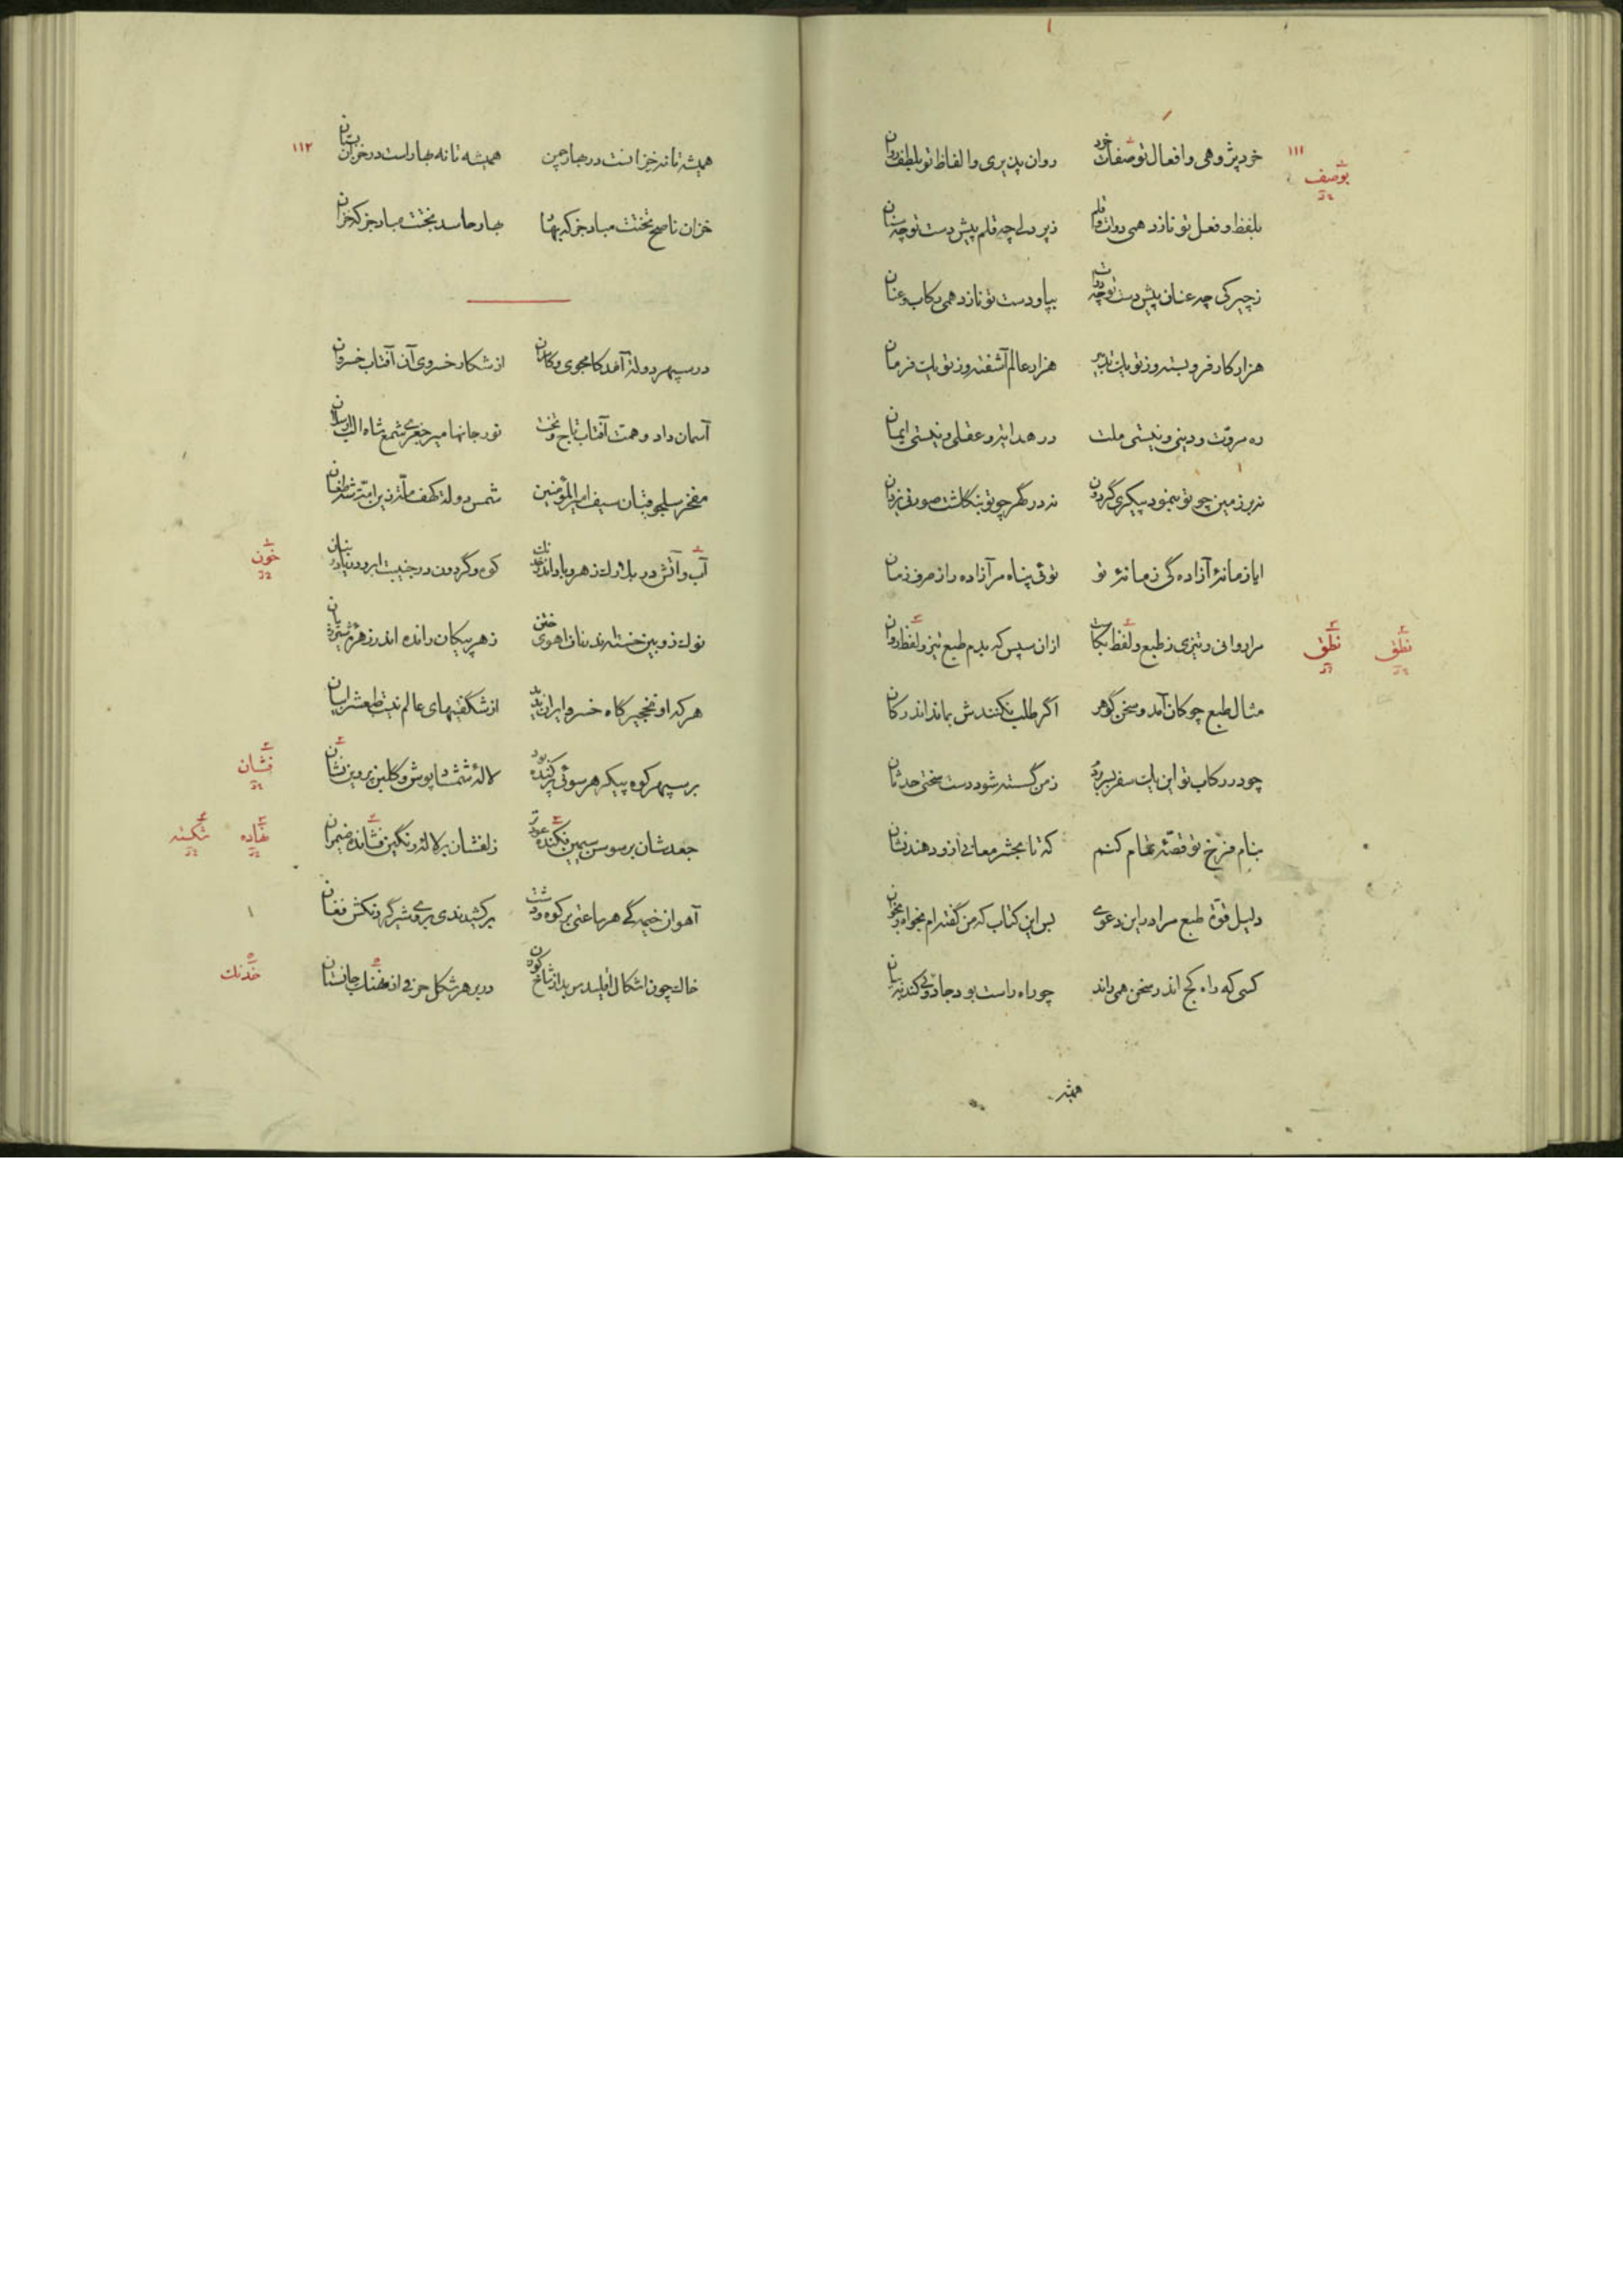 ۱۱۱
خرد پژوهی و افعال تو صفات خرد روان پذیری و الفاظ تو بلطف روان
بوصف
بلفظ و فعل تو نازد همی دوات و قلم ز پر دلی چه قلم پیش دست تو چه سنان
ز چیرکی چه عنان پیش دست تو چه دوات بپا و دست تو نازد همی رکاب و عنان
هزار کار فرو بسته وز تو یک تدبیر هزار عالم آشفته وز تو یک فرمان
ره مروّت و دینی و نیستی ملت در هدایتر و عقلی و نیستی ایمان
نه بر زمین چو تو بنمود پیکری گردون نه در گهر چو تو بنگاشت صورتی یزدان
ایا زمانهٔ آزاده گی زمانهٔ تو توئی پناه مر آزاده را ز صرف زمان
مرا روانی و تیزی ز طبع و لفظ بکاست ازان سپس که بدم طبع تیز و لفظ روان
نطق نطق
مثال طبع چو کان آمد و سخن گوهر اگر طلب نکنندش بماند اندر کان
چو در رکاب تو این یک سفر بسر بردم ز من گسسته شود دست سختی حدثان
بنام فرّخ تو قصّهٔ تمام کنم که تا بحشر معانی ازو دهند نشان
دلیل قوّة طبع مرا درین دعوی بس این کتاب که من گفته‌ام بخواه و بخوان
کسی که راه کج اندر سخن همی داند چو راه راست بود جادوئی کند ببیان
همیشه
۱۱۲
همیشه تا نه خزانست در بهار چمن همیشه تا نه بهار است در خزان بستان
خزان ناصح تختت مباد جز که بهار بهار حاسد بختت مباد جز که خزان
در سپهر دولة آمد کامجوی و کامران از شکار خسروی آن آفتاب خسروان
آسمان داد و همت آفتاب تاج و تخت نور جانها میر جغری شمع شاه الب ارسلان
مفخر سلجوقیان سیف امیر المؤمنین شمس دولة کهف ملّة زین امّة شه طغان
خون
نوک زوبین خسته‌اندشان آهوی ختن زهر پیکان رانده اندر زهرهٔ شیر ژیان
هر که او نخجیر گاه خسرو ایران بدید از شگفتیهای عالم نیست طبعش را بیان
بر سپهر کوه پیکر هر سوئی پرکنده بود لالهٔ شمشاد پوش و گلبن پروین نشان
فشان
جعدشان بر سوسن سیمین فکنده عود تر زلفشان بر لالهٔ رنگین فشانده ضیمران
نهاده شکسته
آهوان خیمگی هر ساعتی بر کوه و دشت برکشیدندی بروی شیر گردونکش فغان
خدنک